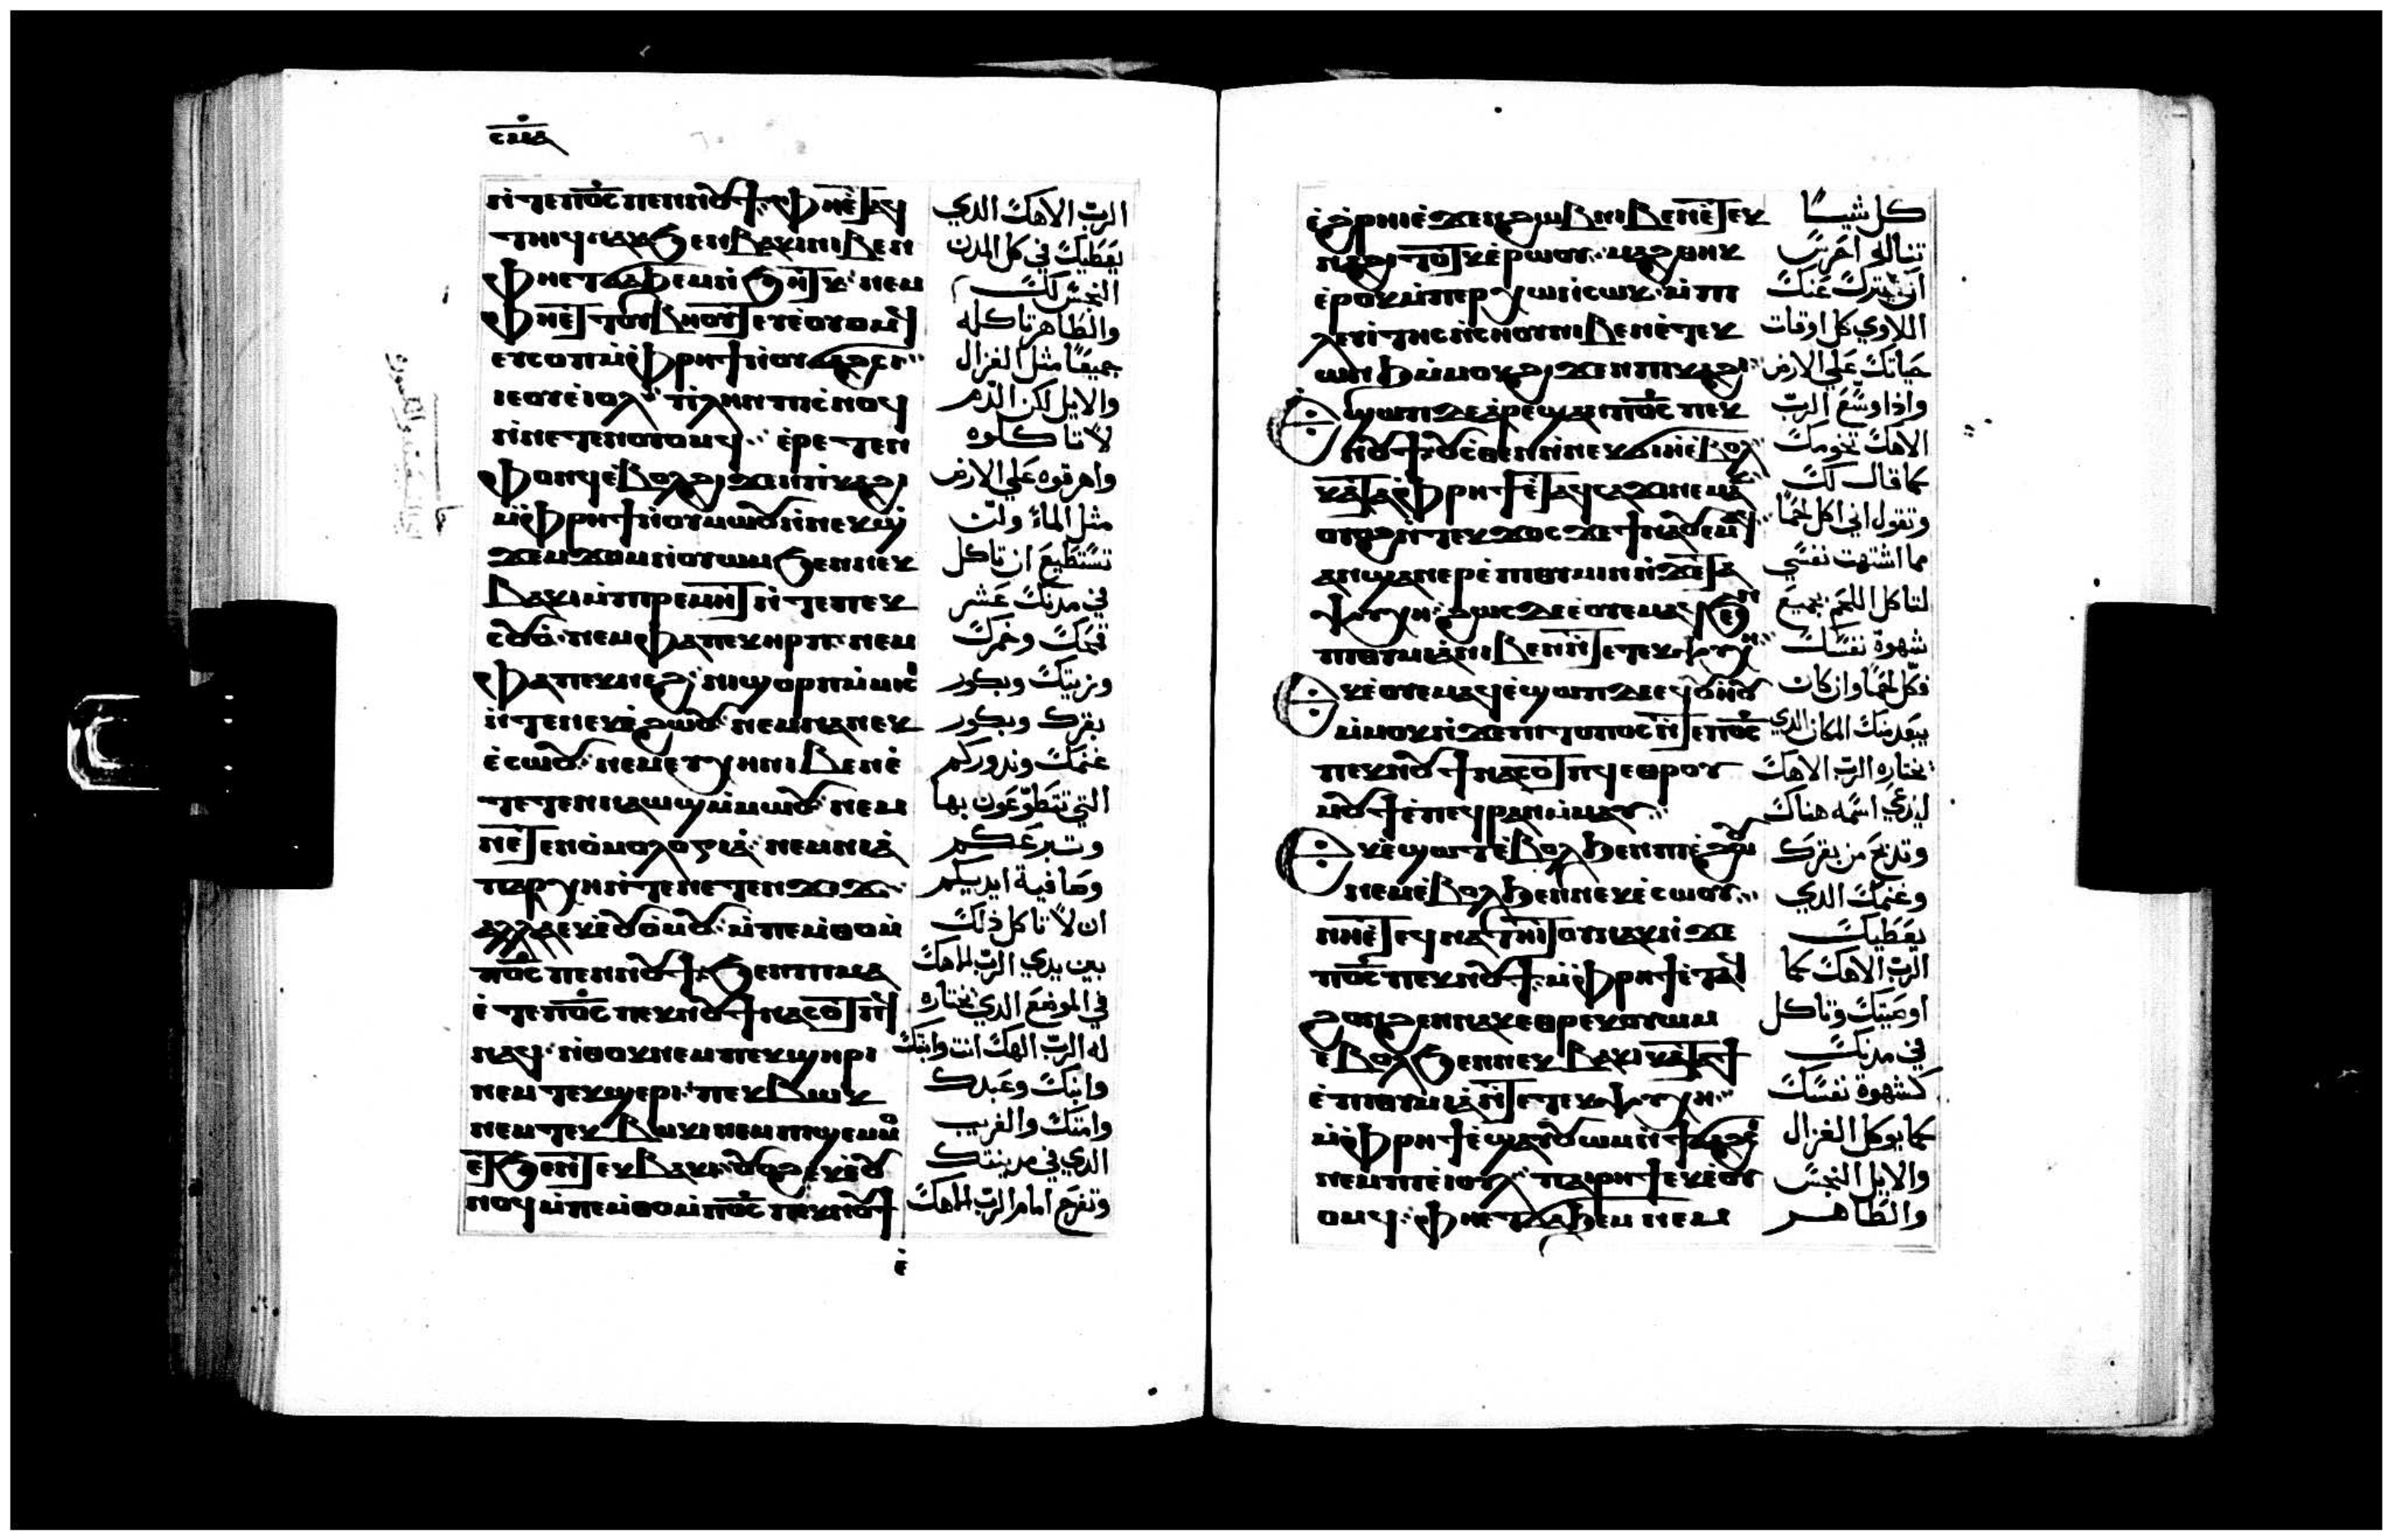 ⲥⲙⲁ
ⲛ̀ⲧⲉⲡⲟ̅ⲥ̅ ⲡⲉⲛⲛⲟⲩϯ ⲫⲏⲉ̀ⲧⲁϥ
ⲧⲏⲓϥ ⲛⲁⲕ ϧⲉⲛⲃⲁⲕⲓ ⲛⲓⲃⲉⲛ
ⲫⲏⲉⲧϭⲁϧⲉⲙ ⲛ̀ϧⲏⲧⲕ ⲛⲉⲙ
ⲫⲏⲉ̀ⲧⲧⲟⲩⲃⲏⲟⲩⲧ ⲉⲩⲉ̀ⲟⲩⲟⲙϥ
ⲉⲩⲥⲟⲡ ⲙ̀ⲫⲣⲏϯ ⲛ̀ⲟⲩϭⲁϩⲥⲓ
ⲓⲉ ⲟⲩⲉⲓⲟⲩⲗ ⲡⲗⲏⲛ ⲡⲓⲥ̀ⲛⲟϥ
ⲛ̀ⲛⲉⲧⲉⲛⲟⲩⲟⲙϥ ⲉ̀ⲣⲉⲧⲉⲛ
ⲫⲟⲛϥ ⲉ̀ⲃⲟⲗ ϩⲓϫⲉⲛ ⲡⲓⲕⲁϩⲓ
ⲙ̀ⲫⲣⲏϯ ⲛ̀ⲟⲩⲙⲱⲟⲩ ⲛ̀ⲛⲉⲕϣ̀
ϫⲉⲙϫⲟⲙ ⲛ̀ⲟⲩⲱⲙ ϧⲉⲛ ⲛⲉⲕ
ⲃⲁⲕⲓ ⲙ̀ⲡⲓⲣⲉⲙⲏⲧ ⲛ̀ⲧⲉ ⲡⲉⲕ
ⲥⲟⲩⲟ̀ ⲛⲉⲙ ⲫⲁ ⲡⲉⲕⲏⲣⲡ ⲛⲉⲙ
ⲫⲁ ⲡⲉⲕⲛⲉϩ ⲛⲓϣⲟⲣⲡ ⲙ̀ⲙⲓⲥⲓ
ⲛ̀ⲧⲉ ⲛⲉⲕⲉ̀ϩⲱⲟⲩ ⲛⲉⲙ ⲛⲁ ⲛⲉⲕ
ⲉ̀ⲥⲱⲟⲩ ⲛⲉⲙ ⲉⲩⲭⲏ ⲛⲓⲃⲉⲛ ⲉ̀
ⲧⲉⲧⲉⲛⲛⲁⲱϣ ⲙ̀ⲙⲱⲟⲩ ⲛⲉⲙ
ⲛⲉⲧⲉⲛⲟ̀ⲙⲟⲗⲟⲅⲓⲁ̀ ⲛⲉⲙ ⲛⲓⲁ̀
ⲡⲁⲣⲭⲏ ⲛ̀ⲧⲉ ⲛⲉⲧⲉⲛϫⲓϫ
ⲁⲗⲗⲁ ⲉⲕⲉ̀ⲟⲩⲟ̀ⲙⲟⲩ ⲙ̀ⲡⲉⲙ̀ⲑⲟ ⲙ̀
ⲡⲟ̅ⲥ̅ ⲡⲉⲛⲛⲟⲩϯ ϧⲉⲛ ⲡⲓⲙⲁ
ⲉ̀ⲧⲉ ⲡⲟ̅ⲥ̅ ⲡⲉⲕⲛⲟⲩϯ ⲛⲁⲥⲟⲧⲡϥ
ⲛⲁϥ ⲛ̀ⲑⲟⲕ ⲛⲉⲙ ⲡⲉⲕϣⲏⲣⲓ
ⲛⲉⲙ ⲧⲉⲕϣⲉⲣⲓ ⲡⲉⲕⲃⲱⲕ
ⲛⲉⲙ ⲧⲉⲕⲃⲱⲕⲓ ⲛⲉⲙ ⲡⲓϣⲉⲙⲙⲟ
ⲉⲧϧⲉⲛ ⲧⲉⲕⲃⲁⲕⲓ ⲟⲩⲟϩ ⲉⲕⲉ̀ⲟⲩ
ⲛⲟϥ ⲙ̀ⲡⲉⲙ̀ⲑⲟ ⲙ̀ⲡⲟ̅ⲥ̅ ⲡⲉⲕⲛⲟⲩϯ
ⲉ̀
الرب الاهك الدي
يعطيك في كل المدن
النجس لك
والطاهر تاكله
جميعا مثل الغزال
والايل لكن الدم
لا تاكلوه
واهرقوه علي الارض
مثل الماء ولن
تستطيع ان تاكل
في مدنك عشر
قمحك وخمرك
وزيتك وبكور
بقرك وبكور
غنمك وندوركم
التي تتطوعون بها
وتبرعكم
وصافية ايديكم
ان لا تاكل ذلك
بين يدي الرب الاهك
في الموضع الدي يختاره
له الرب الهك انت وابنك
وابنتك وعبدك
وامتك والغريب
الدي في مدينتك
وتفرح امام الرب الاهك
ⲉ̀ϩ̀ⲣⲏⲓ ⲉ̀ϫⲉⲛ ϩⲱⲃ ⲛⲓⲃⲉⲛ ⲉ̀ⲧⲉⲕ
ⲛⲁϩⲓⲧⲟⲧⲕ ⲉ̀ⲣⲱⲟⲩ ⲙⲁϩⲑⲏⲕ
ⲉ̀ⲣⲟⲕ ⲙ̀ⲡⲉⲣⲭⲱ ⲛ̀ⲥⲱⲕ ⲙ̀ⲡⲓ
ⲗⲉⲩⲓ̀ⲧⲏⲥ ⲛ̀ⲥⲏⲟⲩ ⲛⲓⲃⲉⲛ ⲉ̀ⲧⲉⲕ
ⲱⲛϧ ⲙ̀ⲙⲟⲕ ϩⲓϫⲉⲛ ⲡⲓⲕⲁϩⲓ
ⲉ̀ϣⲱⲡ ⲇⲉ ⲁⲣⲉϣⲁⲛ ⲡⲟ̅ⲥ̅ ⲡⲉⲕ
ⲛⲟⲩϯ ⲟⲩⲉ̀ⲥⲑⲉⲛ ⲛ̀ⲛⲉⲕϭⲓⲏ ⲉ̀ⲃⲟⲗ
ⲕⲁⲧⲁ ⲫ̀ⲣⲏϯ ⲉ̀ⲧⲁϥⲥⲁϫⲓ ⲛⲉⲙⲁⲕ
ⲟⲩⲟϩ ⲛ̀ⲧⲉⲕϫⲟⲥ ϫⲉ ϯⲛⲁⲟⲩⲉⲙⲁϥ
ⲁⲛϣⲁⲛⲉⲣⲉ̀ⲡⲓⲑⲩⲙⲓⲛ ⲛ̀ϫⲉ ⲧⲁ
ⲯⲩⲭⲏ ϩⲱⲥ ⲇⲉ ⲉ̀ⲟⲩⲉⲙⲁϥ ϧⲉⲛ
ⲡⲓⲑⲩⲙⲓⲁ̀ ⲛⲓⲃⲉⲛ ⲛ̀ⲧⲉ ⲧⲉⲕⲯⲩⲭⲏ
ⲉⲕⲉ̀ⲟⲩⲉⲙⲁϥ ⲉ̀ϣⲱⲡ ⲇⲉ ϥⲟⲩⲏⲟⲩ
ⲙ̀ⲙⲟⲕ ⲛ̀ϫⲉ ⲡⲓⲧⲟⲡⲟⲥ ⲛ̀ⲧⲉ ⲡⲟ̅ⲥ̅
ⲡⲉⲕⲛⲟⲩϯ ⲛⲁⲥⲟⲧⲡϥ ⲉⲑⲣⲟⲩ
ⲙⲟⲩϯ ⲉ̀ⲡⲉϥⲣⲁⲛ ⲙ̀ⲙⲁⲩ
ⲉⲕⲉ̀ϣⲱⲧ ⲉ̀ⲃⲟⲗ ϧⲉⲛ ⲛⲉⲕⲉ̀ϩⲱⲟⲩ
ⲛⲉⲙ ⲉ̀ⲃⲟⲗ ϧⲉⲛ ⲛⲉⲕⲉ̀ⲥⲱⲟⲩ
ⲛⲏⲉ̀ⲧⲉϥⲛⲁⲧⲏⲓⲧⲟⲩ ⲛⲁⲕ ⲛ̀ϫⲉ
ⲡⲟ̅ⲥ̅ ⲡⲉⲕⲛⲟⲩϯ ⲙ̀ⲫⲣⲏϯ ⲉ̀ⲧⲁⲓ
ϩⲟⲛϩⲉⲛ ⲛⲁⲕ ⲉⲑⲣⲉⲕⲟⲩⲱⲙ
ⲉ̀ⲃⲟⲗ ϧⲉⲛ ⲛⲉⲕⲃⲁⲕⲓ ⲕⲁⲧⲁ ϯ
ⲉ̀ⲡⲓⲑⲩⲙⲓⲁ̀ ⲛ̀ⲧⲉ ⲧⲉⲕⲯⲩⲭⲏ
ⲙ̀ⲫⲣⲏϯ ⲉ̀ϣⲁⲩⲟⲩⲱⲙ ⲛ̀ϯϭⲁϩⲥⲓ
ⲛⲉⲙ ⲡⲓⲉⲓⲟⲩⲗ ⲡⲁⲓⲣⲏϯ ⲉⲕⲉ̀ⲟⲩ
ⲟⲙϥ ⲫⲏⲉⲧϭⲁϧⲉⲙ ⲛⲉⲙ
كل شيا
تناله احرس
ان يترك عنك
اللاوي كل اوقات
حياتك علي الارض
واذا وسع الرب
الاهك تخومك
كما قال لك
وتقول اني اكل لحما
مما اشتهت نفسي
لتاكل اللحم بجميع
شهوة نفسك
فكل لحما وان كان
يبعد منك المكان الدي
يختاره الرب الاهك
ليدعي اسمه هناك
وتدبح من بقرك
وغنمك الدي
يعطيك
الرب الاهك كما
اوصيتك وتاكل
في مدنك
كشهوة نفسك
كما يوكل الغزال
والايل النجس
والطاهر